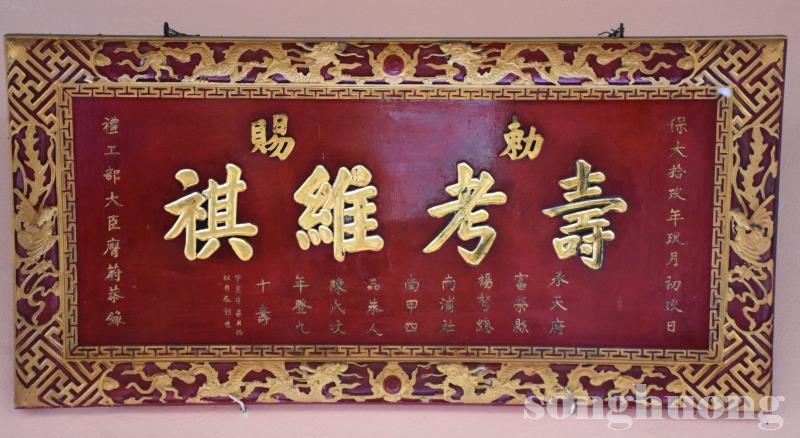 保大拾玖年玖月初玖日
勅賜
壽考維祺
承天府
富榮縣
楊弩總
南浦社
南甲四
品恭人
陳氏
年登九
十壽
禮工部大臣膺蔚恭錄
songhuong